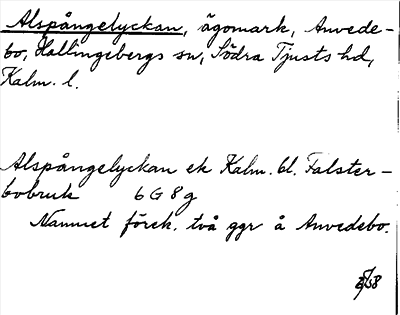 Alspångelyckan, ägomark, Anvede-
bo, Hallingebergs sn, Södra Tjusts hd,
Kalm. l.
Alspångelyckan ek Kalm. bl. Falster-
bobruk 6 G 8 g
Namnet förek. två ggr å Anvedebo.